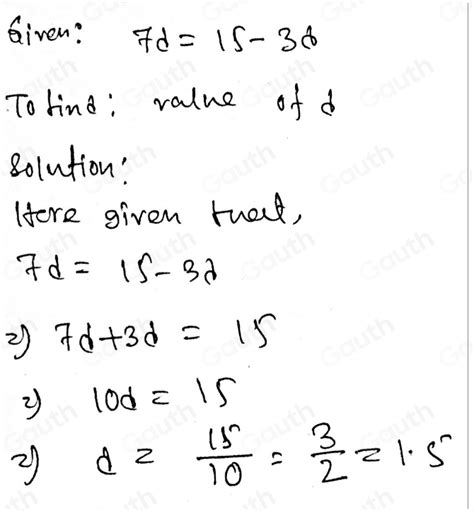 Given: 7d = 15 - 3d
To find: value of d
Solution:
Here given that,
7d = 15 - 3d
=) 7d + 3d = 15
=) 10d = 15
=) d = 15/10 = 3/2 = 1.5
Gauth